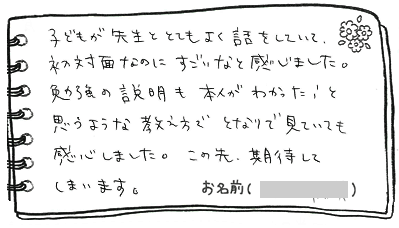 子どもが先生ととてもよく話をしていて、
初対面なのにすごいなと感じました。
勉強の説明も本人が"わかった!"と
思うような教え方でとなりで見ていても
感心しました。この先、期待して
しまいます。
お名前( )